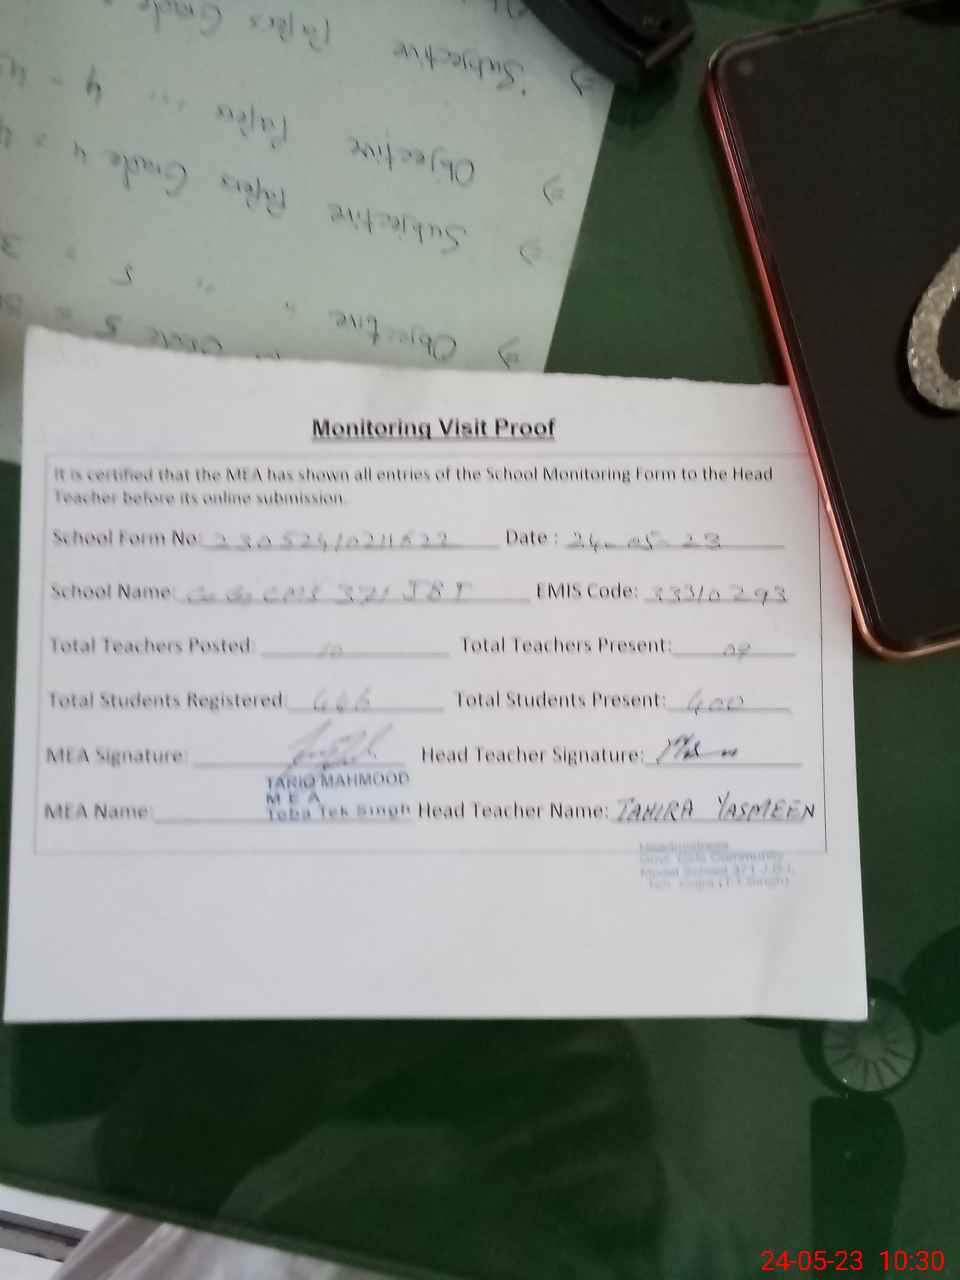 Subjective Papers Grade
Objective Papers ... 4 - 4
Subjective Papers Grade 4 =
Objective " " 5 " 3
5 =
Monitoring Visit Proof
It is certified that the MEA has shown all entries of the School Monitoring Form to the Head
Teacher before its online submission.
School Form No: Date : 24-05-23
School Name: 371 JB EMIS Code: 33310293
Total Teachers Posted: 10 Total Teachers Present: 09
Total Students Registered: 446 Total Students Present: 400
MEA Signature: Head Teacher Signature:
TARIQ MAHMOOD
M E A
MEA Name: Toba Tek Singh Head Teacher Name: TAHIRA YASMEEN
Headmistress
Govt. Girls Community
Model School 371 J.B
24-05-23 10:30